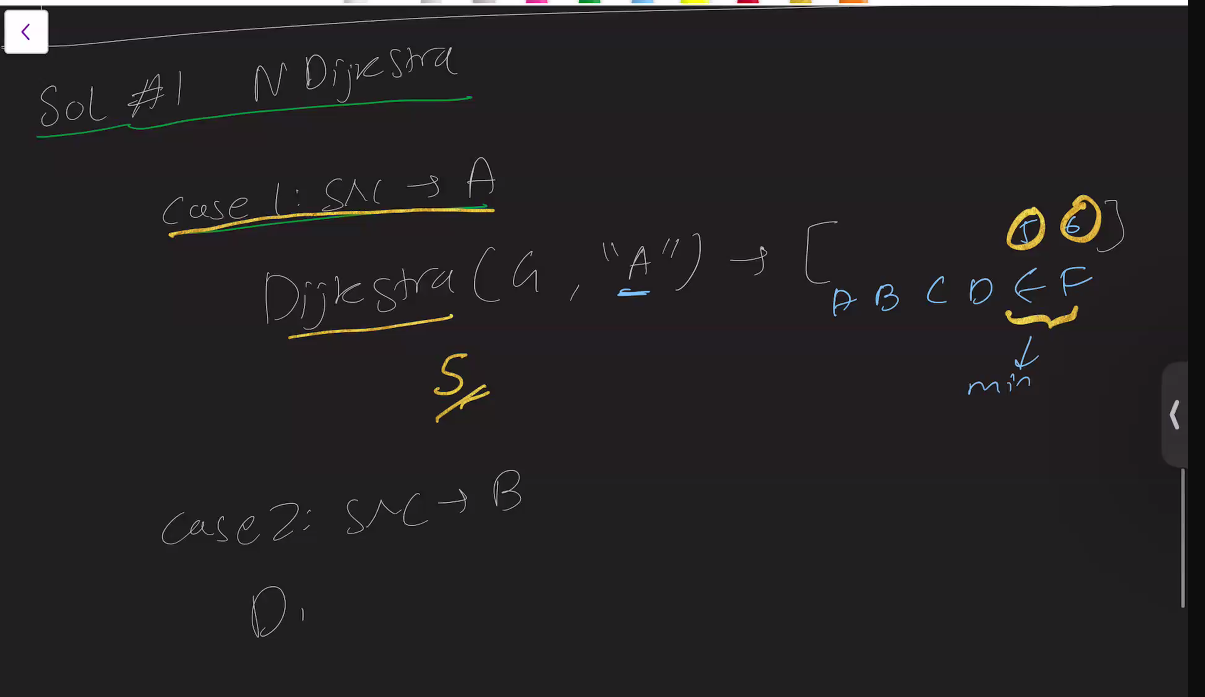 Sol #1 N Dijkstra
Case 1: src → A
5 6
Dijkstra (G, "A") → [ ]
A B C D E F
min
5
Case 2: src → B
Di